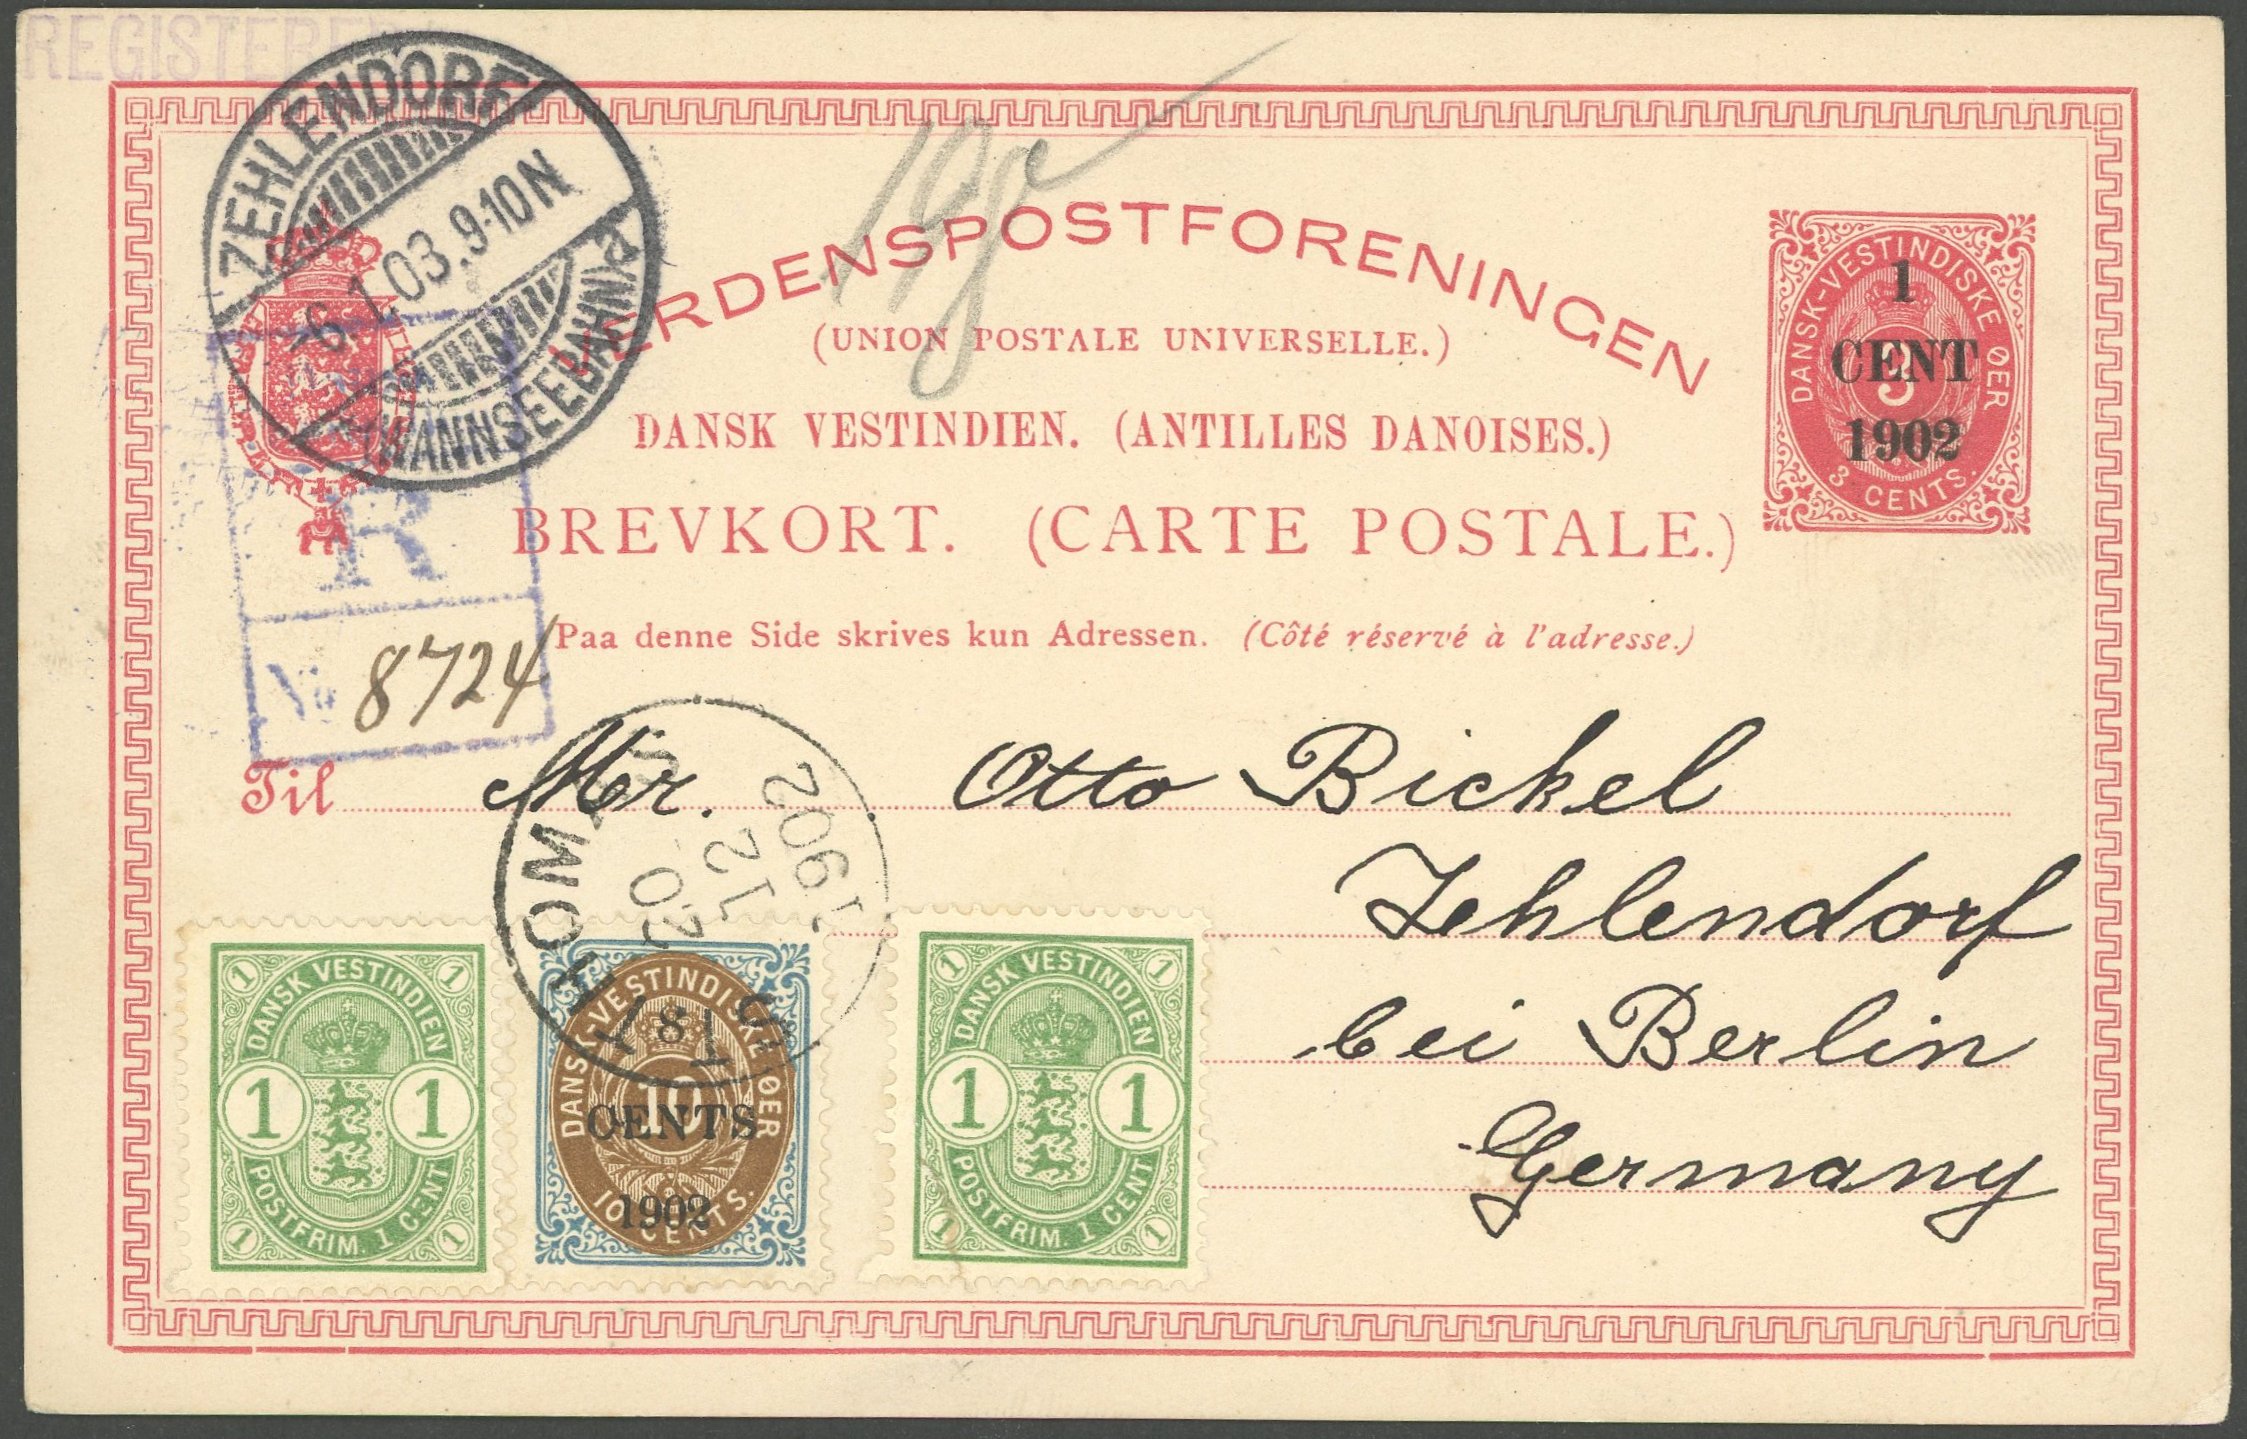 REGISTERED
ZEHLENDORF
-6.1.03.9-10N
(WANNSEEBAHN)
19
VERDENSPOSTFORENINGEN
(UNION POSTALE UNIVERSELLE.)
DANSK VESTINDIEN. (ANTILLES DANOISES.)
BREVKORT. (CARTE POSTALE.)
DANSK-VESTINDISKE ØER
1
CENT
3
1902
3 CENTS.
R
No 8724
Paa denne Side skrives kun Adressen. (Côté réservé à l'adresse.)
Til Mr. Otto Bickel
Zehlendorf
bei Berlin
Germany
ST THOMAS
20
12
1902
1 1
DANSK VESTINDIEN
1 1
POSTFRIM. 1 CENT
1 1
DANSK-VESTINDISKE ØER
8
10
CENTS
1902
10 CENTS.
1 1
DANSK VESTINDIEN
1 1
POSTFRIM. 1 CENT
1 1